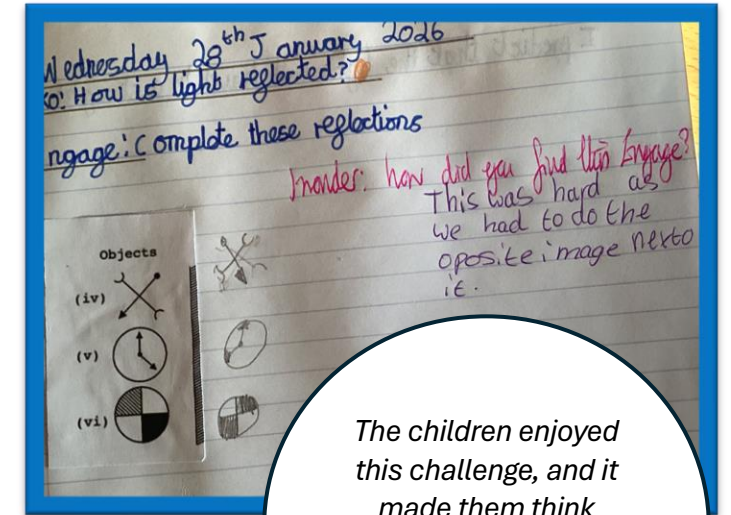 Wednesday 28th January 2026
KO: How is light reglected?
ngage: Complete these reglections
I wonder: how did you find this Engage?
This was hard as
we had to do the
oposite image nexto
it.
Objects
(iv)
(v)
(vi)
The children enjoyed
this challenge, and it
made them think